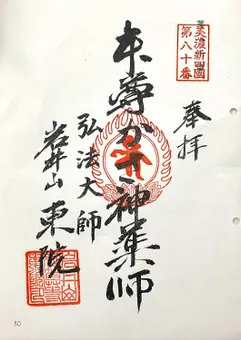 美濃新四國
第八十番
奉拝
本尊がさ神薬師
弘法大師
岩井山東院
50